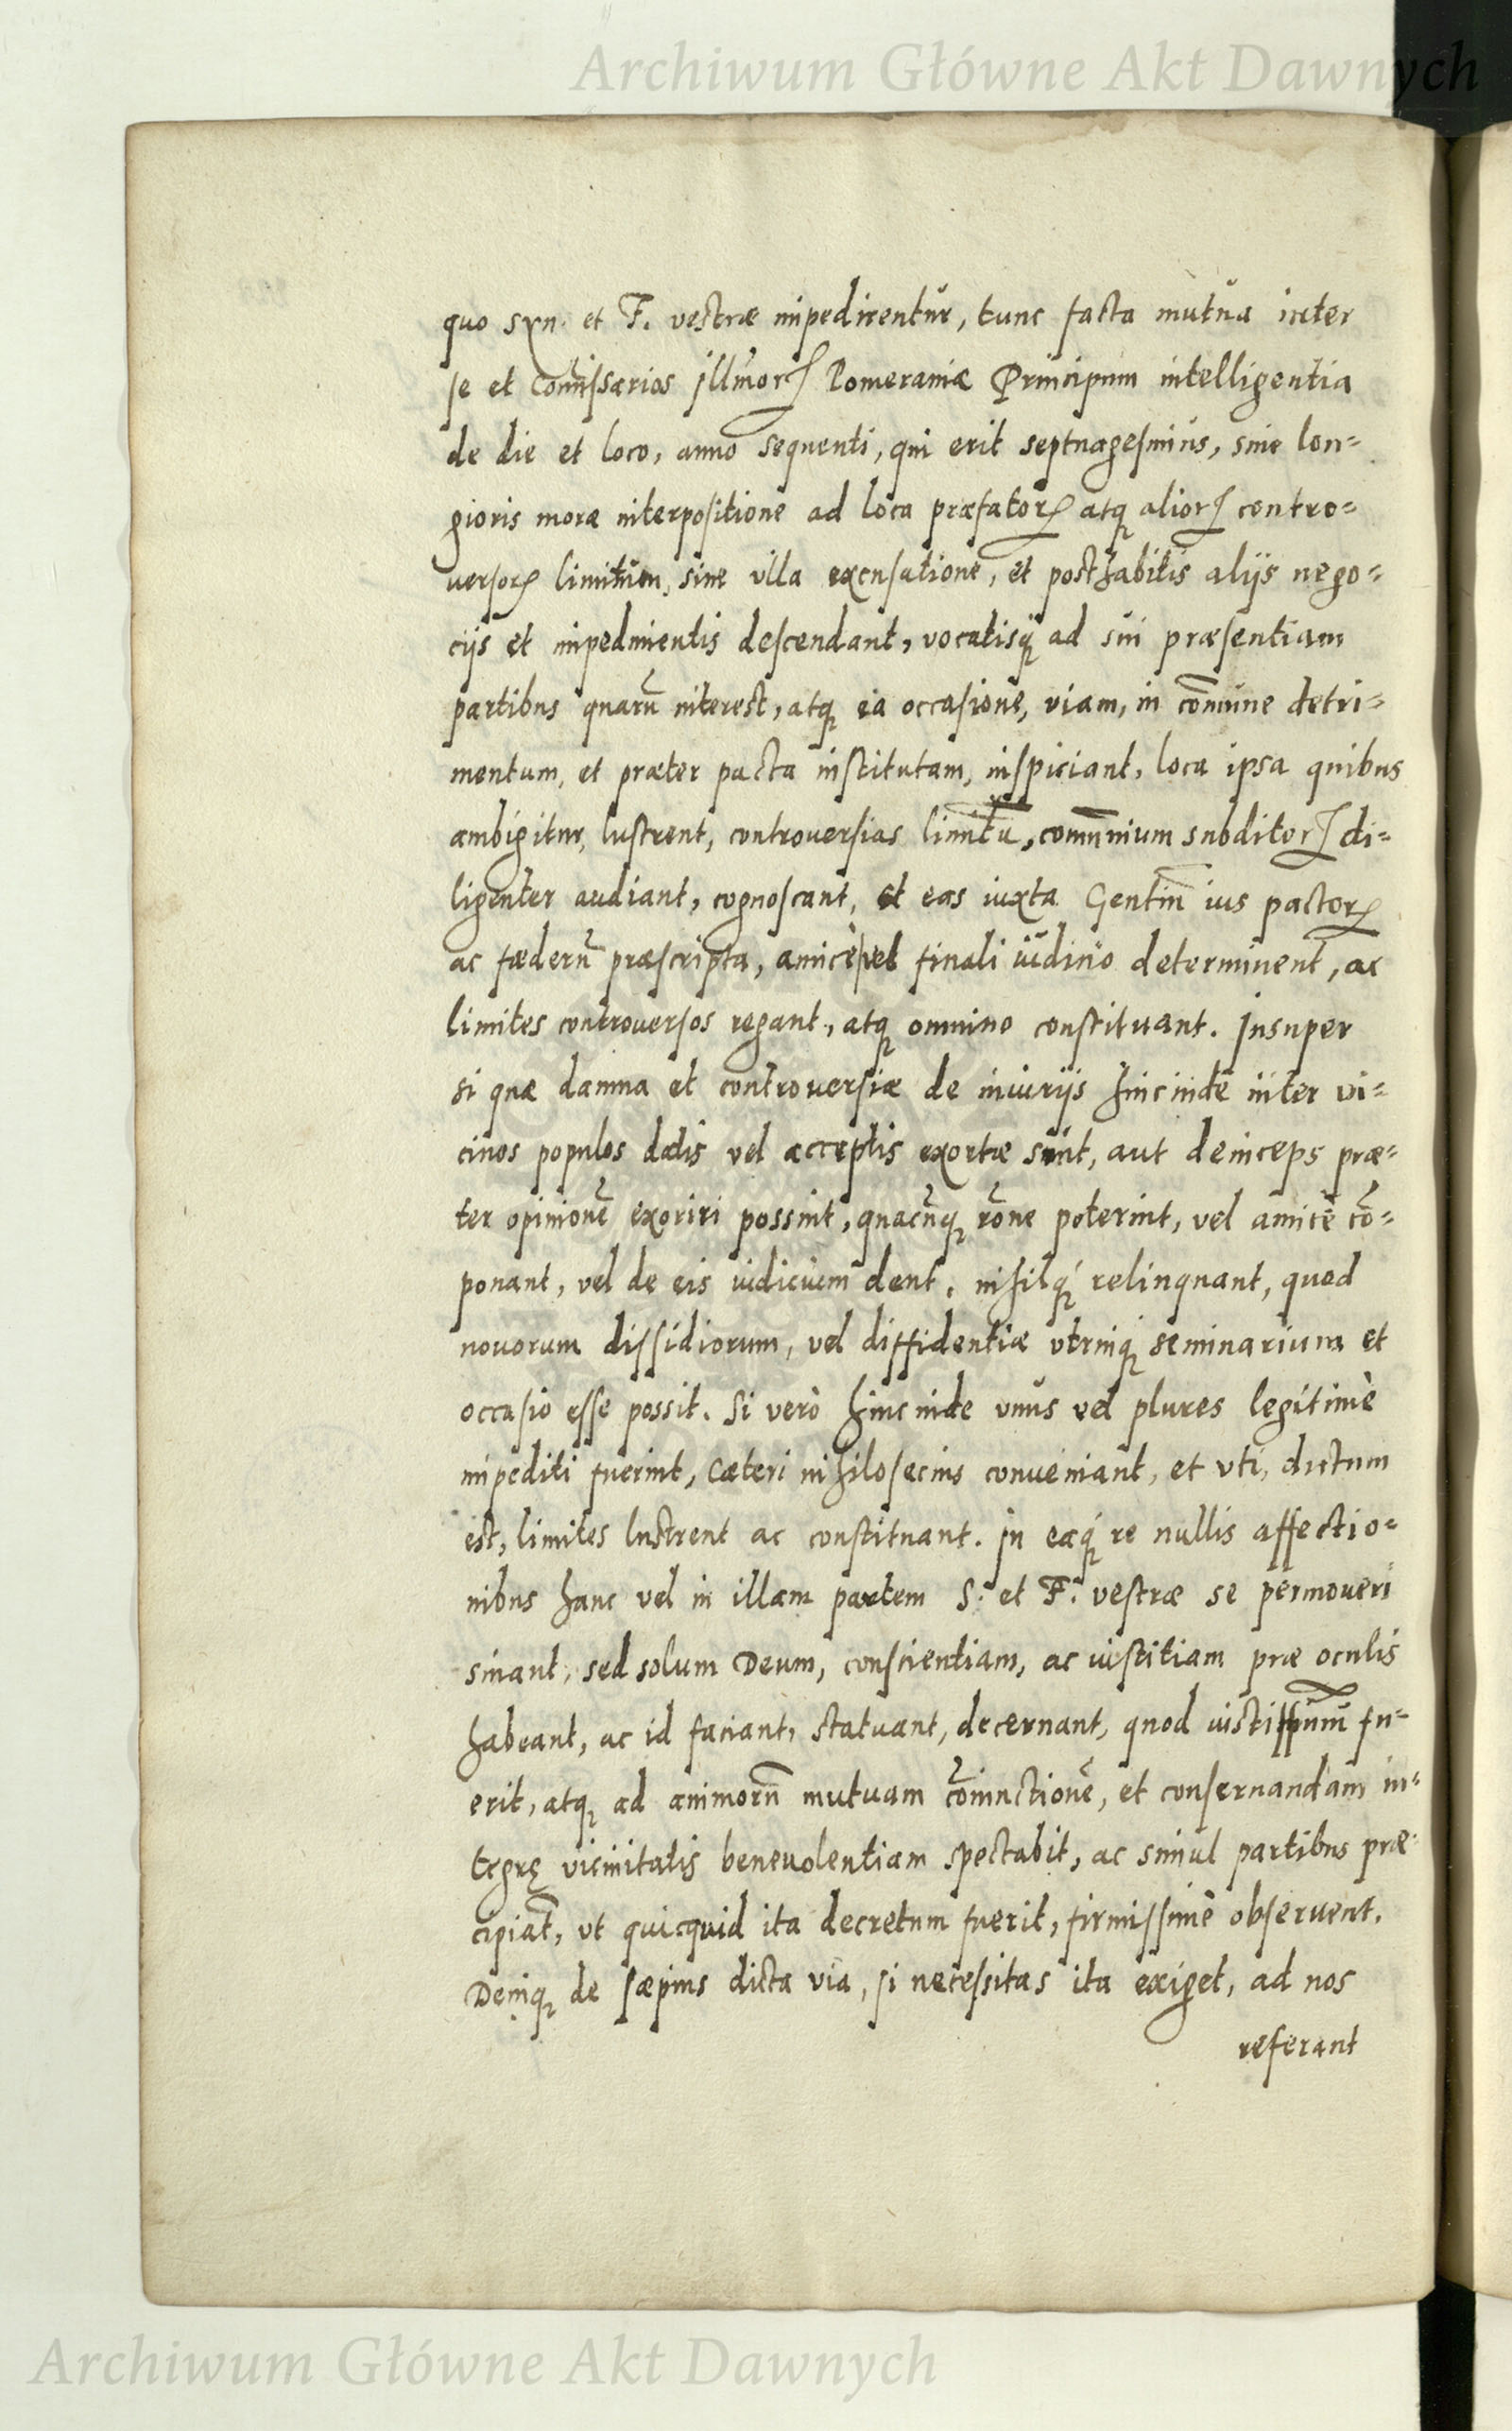 Archiwum Główne Akt Dawnych
quo Syn. et F. vestræ impedirentur, tunc facta mutua inter
se et Com̃issarios Illmorꝝ Pomeraniæ Principum intelligentia
de die et loco, anno sequenti, qui erit septuagesimus, sine lon=
gioris moræ interpositione ad loca præfatorꝝ atqꝫ aliorꝝ contro=
uersorꝝ limitum, sine vlla excusatione, et posthabitis alijs nego=
cijs et impedimentis descendant, vocatisqꝫ ad sui præsentiam
partibus quarũ interest, atqꝫ ea occasione, viam, in com̃une detri=
mentum, et præter pacta institutam, inspiciant, loca ipsa quibus
ambigitur, lustrent, controuersias limitũ, communium subditorꝝ di=
ligenter audiant, cognoscant, et eas iuxta Gentiũ ius pactorꝝ
ac fœderũ præscripta, amicè vel finali iudicio determinent, ac
limites controuersos regant, atqꝫ omnino constituant. Insuper
si quæ damna et controuersiæ de iniurijs hinc inde inter vi=
cinos populos datis vel acceptis exortæ sint, aut deinceps præ=
ter opinionẽ exoriri possint, quacũqꝫ rõne poterint, vel amicè cõ=
ponant, vel de eis iudicium dent, nihilqꝫ relinquant, quod
nouorum dissidiorum, vel diffidentiæ vtrinqꝫ seminarium et
occasio esse possit. Si verò hinc inde vnus vel plures legitimè
impediti fuerint, Cæteri nihilosecius conueniant, et vti, dictum
est, limites lustrent ac constituant. In eaqꝫ re nullis affectio=
nibus hanc vel in illam partem S. et F. vestræ se permoueri
sinant, sed solum Deum, conscientiam, ac iustitiam præ oculis
habeant, ac id faciant, statuant, decernant, quod iustissimũ fu=
erit, atqꝫ ad animorũ mutuam cõiunctionẽ, et conseruandam in=
tegrę vicinitatis beneuolentiam spectabit, ac simul partibus præ=
cipiãt, vt quicquid ita decretum fuerit, firmissimè obseruent.
Deniqꝫ de sæpius dicta via, si necessitas ita exiget, ad nos
referant
Archiwum Główne Akt Dawnych